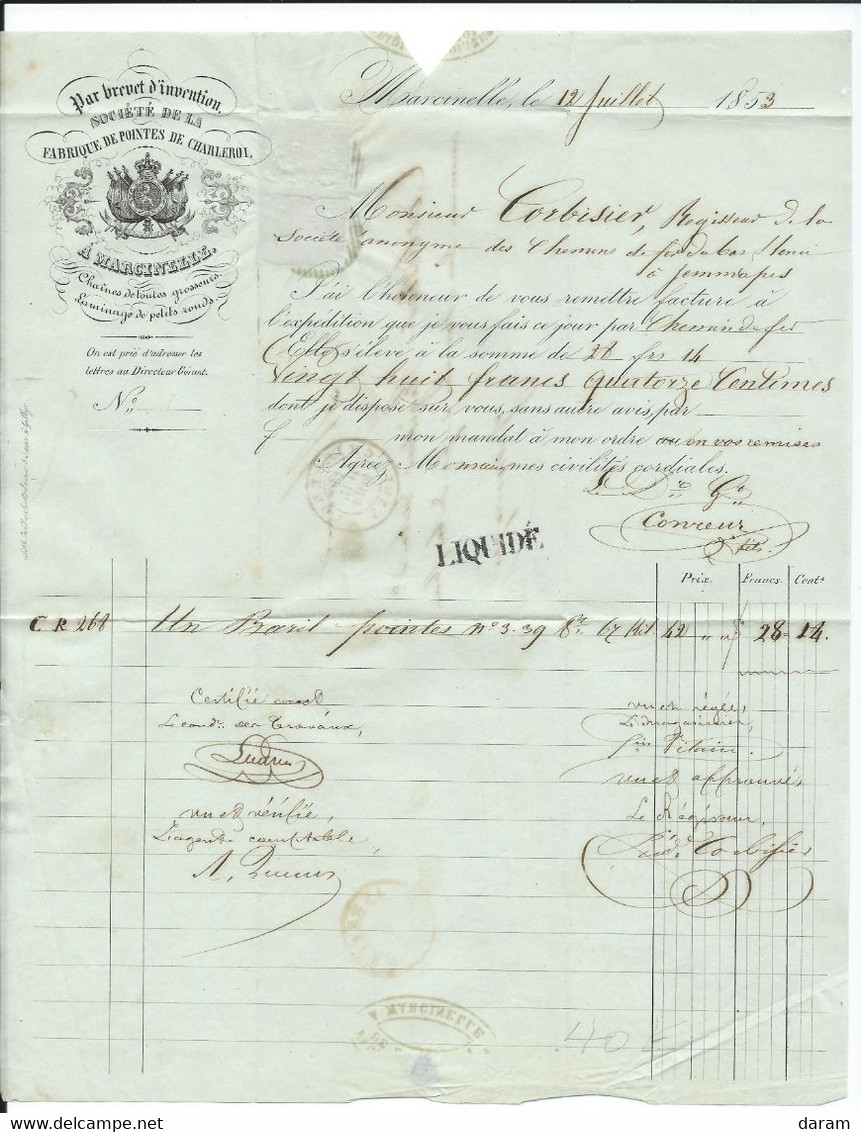 Par brevet d'invention,
SOCIÉTÉ DE LA
FABRIQUE DE POINTES DE CHARLEROI,
À MARCINELLE.
Chaînes de toutes grosseurs.
Laminage de petits ronds.
On est prié d'adresser les
lettres au Directeur Gérant.
N.º
Marcinelle, le 12 Juillet 1853
Monsieur Corbisier, Régisseur de la
Société anonyme des Chemins de fer du bas flenu
à Jemmapes
J'ai l'honneur de vous remettre facture à
l'expédition que je vous fais ce jour par Chemin de fer
Elle s'élève à la somme de 28 frs 14
Vingt huit francs quatorze Centimes
dont je dispose sur vous, sans autre avis, par
f mon mandat à mon ordre ou en vos remises
Agréez, Monsieur, mes civilités cordiales.
Le Dr Gt
Conreur
fils
LIQUIDÉ
Prix. Francs. Cent.s
C R 268 Un Baril pointes Nº 3. 39 67 Kil 42 " " f 28 14.
Certifié exact
Le cond.r des Travaux,
vu et réglé,
Le magasinier,
Vitain
vu et approuvé
vu et vérifié,
L'agent comptable
Le Régisseur,
Corbisier
A MARCINELLE
DE
40 E
delcampe.net
daram